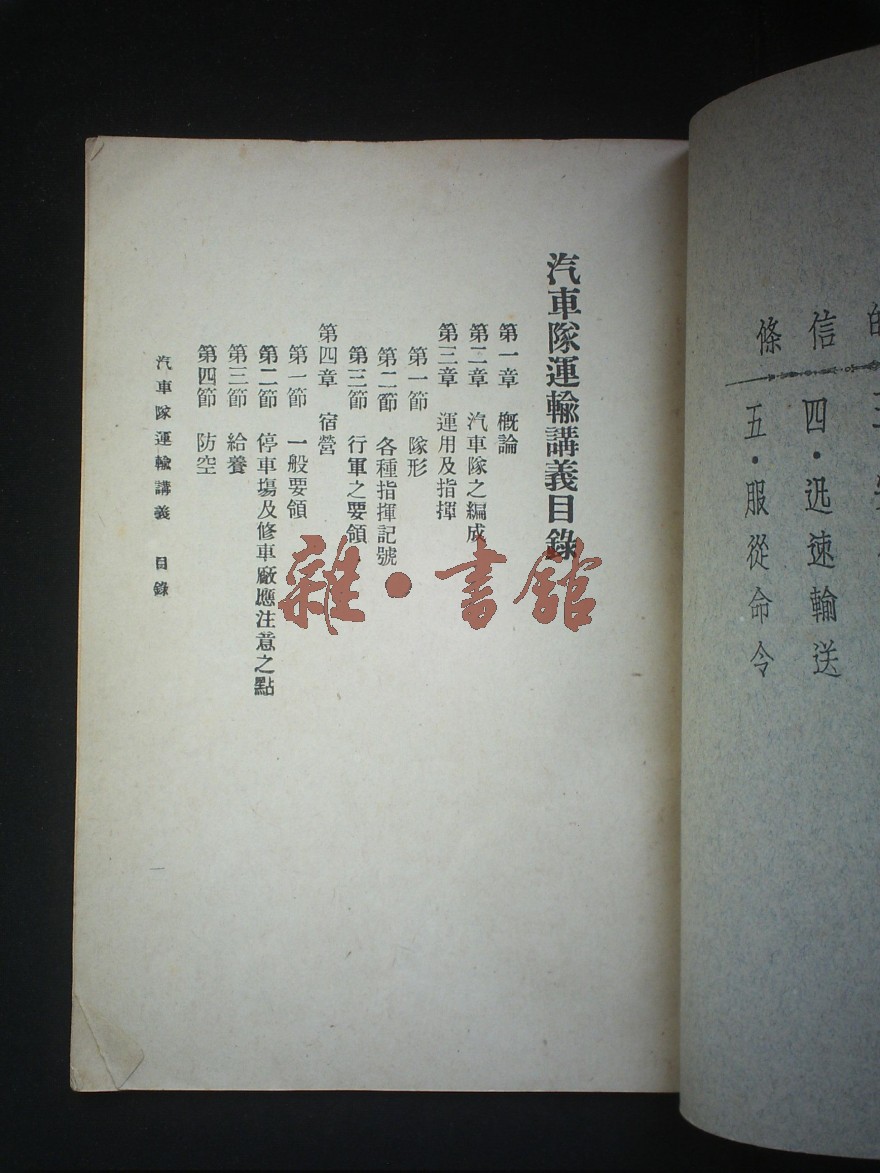 信條
四·迅速輸送
五·服從命令
汽車隊運輸講義目錄
第一章 概論
第二章 汽車隊之編成
第三章 運用及指揮
第一節 隊形
第二節 各種指揮記號
第三節 行軍之要領
第四章 宿營
第一節 一般要領
第二節 停車塲及修車廠應注意之點
第三節 給養
第四節 防空
汽車隊運輸講義 目錄
雜·書館